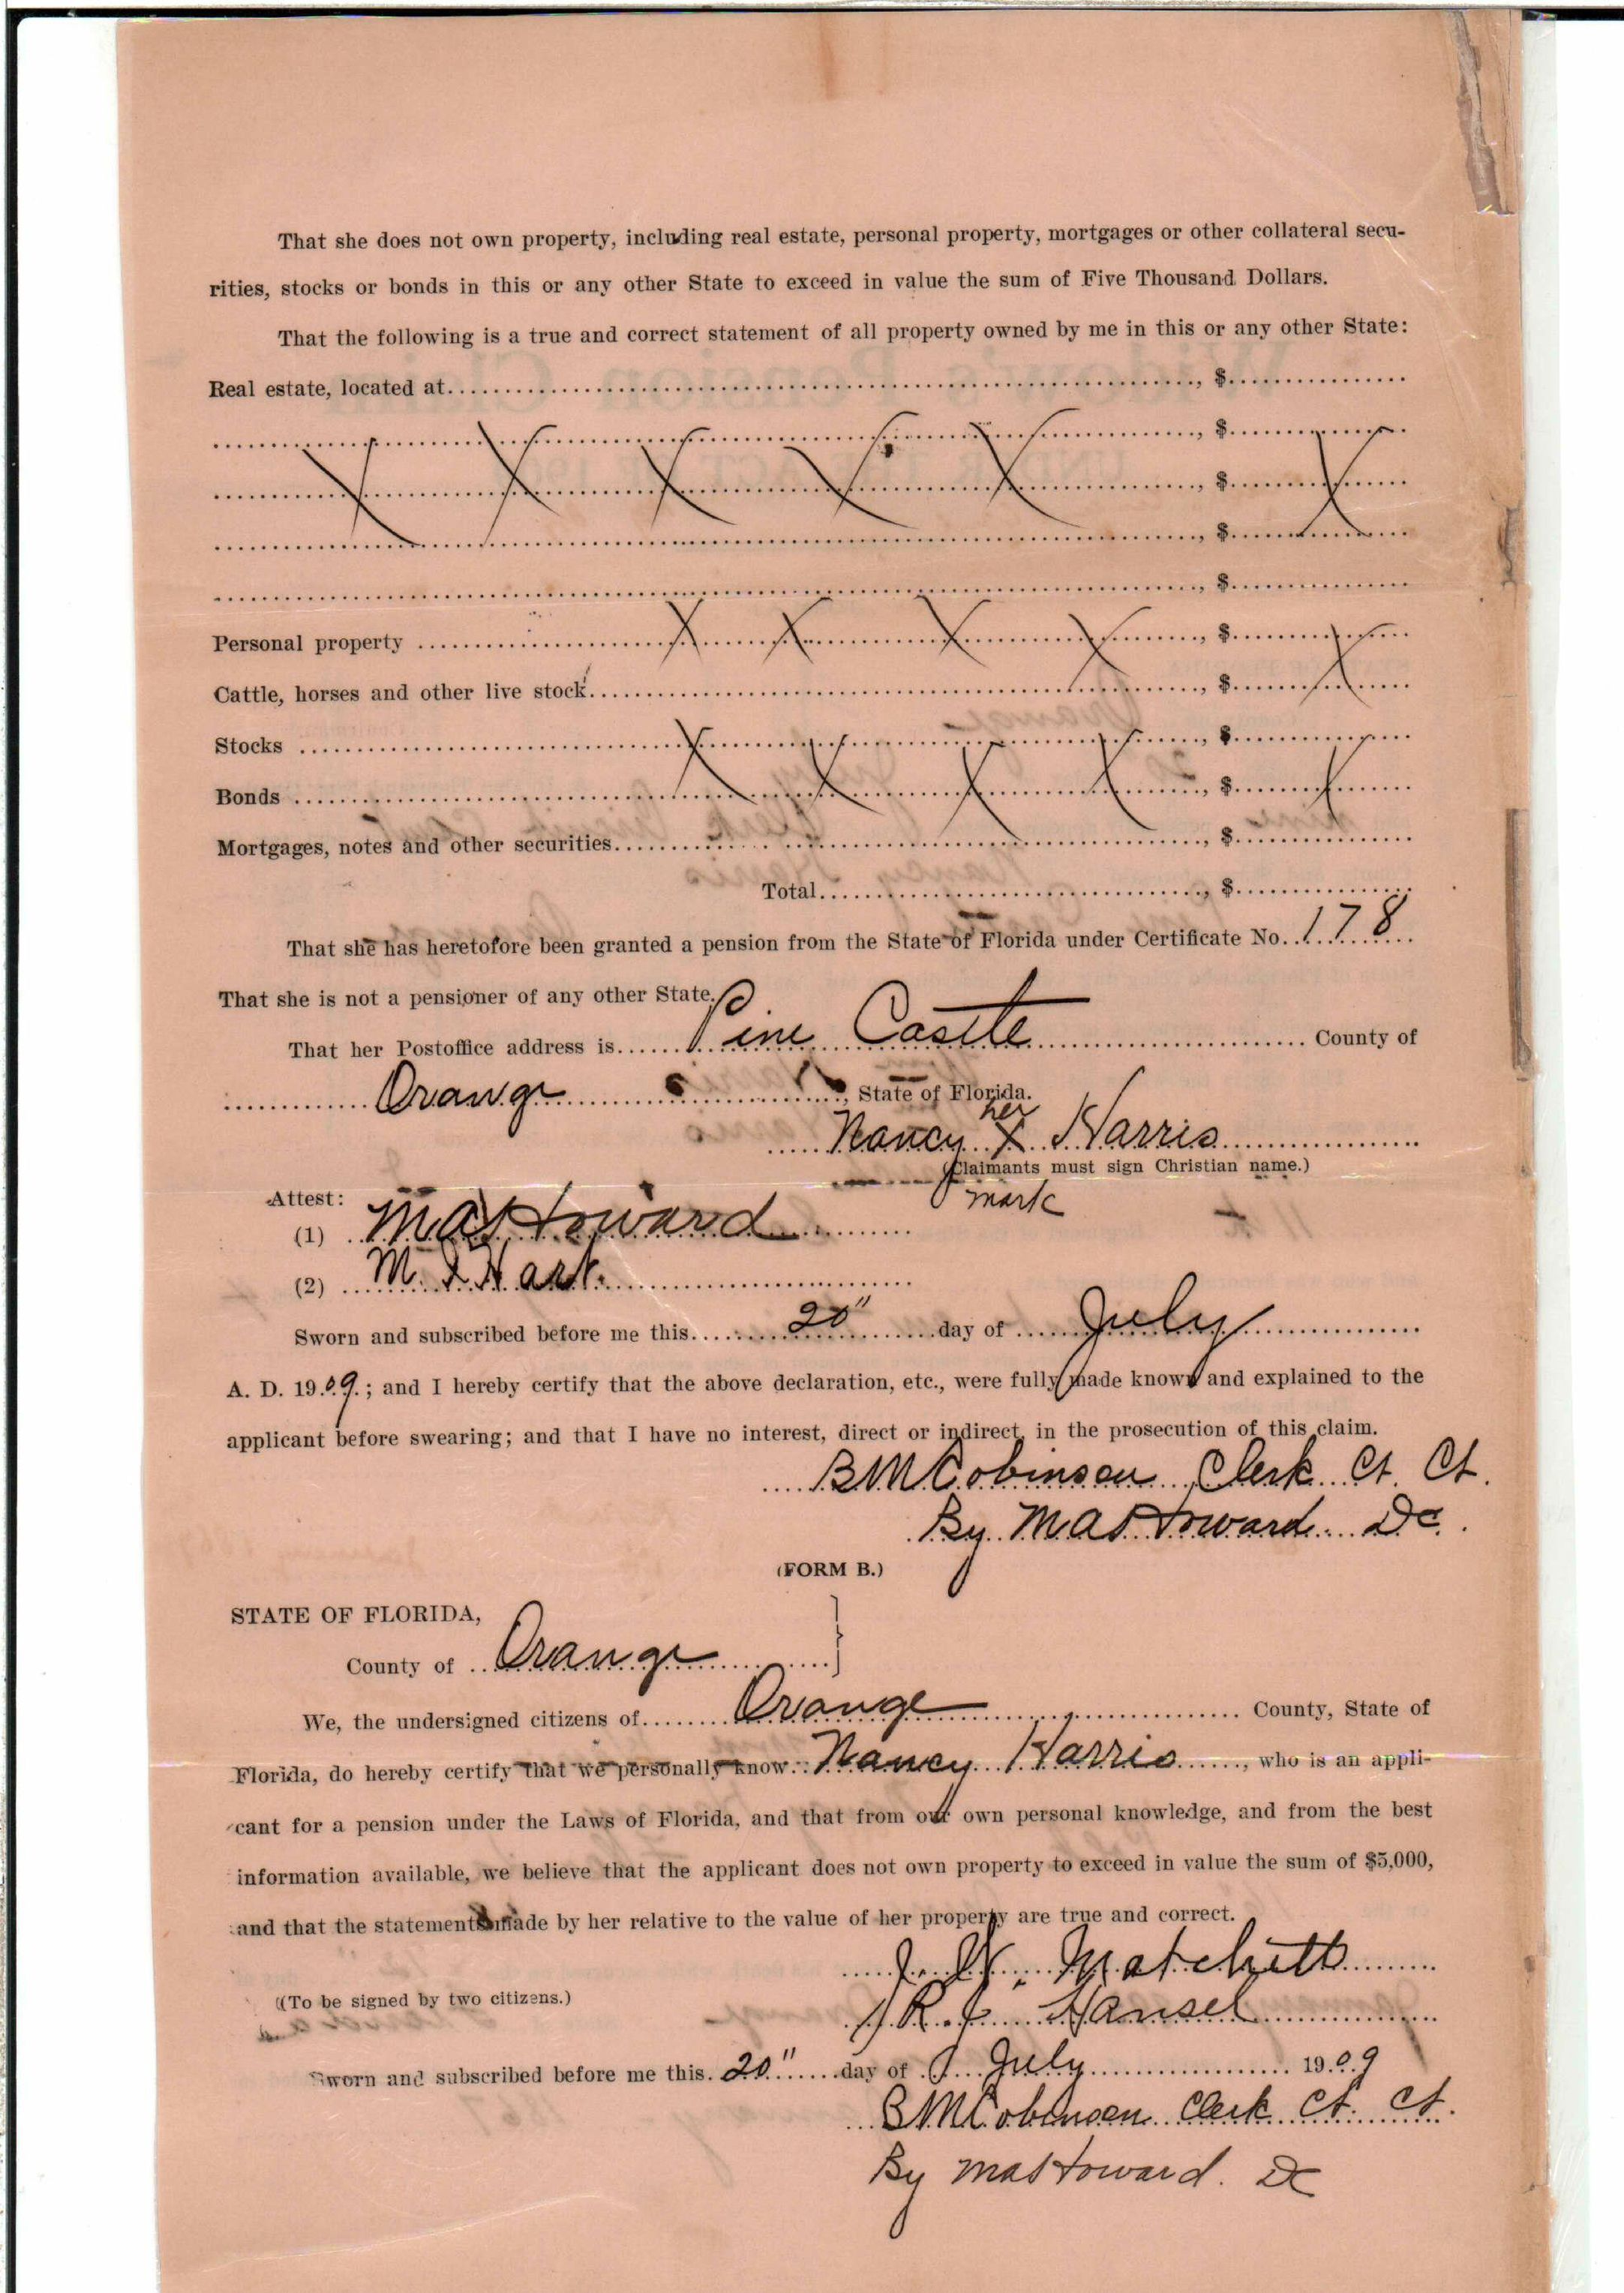 That she does not own property, including real estate, personal property, mortgages or other collateral secu-
rities, stocks or bonds in this or any other State to exceed in value the sum of Five Thousand Dollars.
That the following is a true and correct statement of all property owned by me in this or any other State:
Real estate, located at........, $........
........, $........
X X X X X ........, $........ X
........, $........
........, $........
Personal property ........ X X X X ........, $........ X
Cattle, horses and other live stock........, $........
Stocks ........ X X X X ........, $........ X
Bonds ........, $........
Mortgages, notes and other securities........, $........
Total........, $........
That she has heretofore been granted a pension from the State of Florida under Certificate No. 178
That she is not a pensioner of any other State.
That her Postoffice address is Pine Castle County of
Orange, State of Florida.
her
Nancy X Harris
(Claimants must sign Christian name.)
mark
Attest:
(1) M A Howard
(2) M. I Hart.
Sworn and subscribed before me this 20" day of July
A. D. 1909.; and I hereby certify that the above declaration, etc., were fully made known and explained to the
applicant before swearing; and that I have no interest, direct or indirect, in the prosecution of this claim.
B M Robinson Clerk Ct. Ct.
By M A Howard DC.
(FORM B.)
STATE OF FLORIDA, }
County of Orange
We, the undersigned citizens of Orange County, State of
Florida, do hereby certify that we personally know Nancy Harris, who is an appli-
cant for a pension under the Laws of Florida, and that from our own personal knowledge, and from the best
information available, we believe that the applicant does not own property to exceed in value the sum of $5,000,
and that the statements made by her relative to the value of her property are true and correct.
J. N. Matchett
(To be signed by two citizens.)
R. J. Hansel
Sworn and subscribed before me this 20" day of July 1909
B M Robinson Clerk Ct. Ct.
By M A Howard. DC